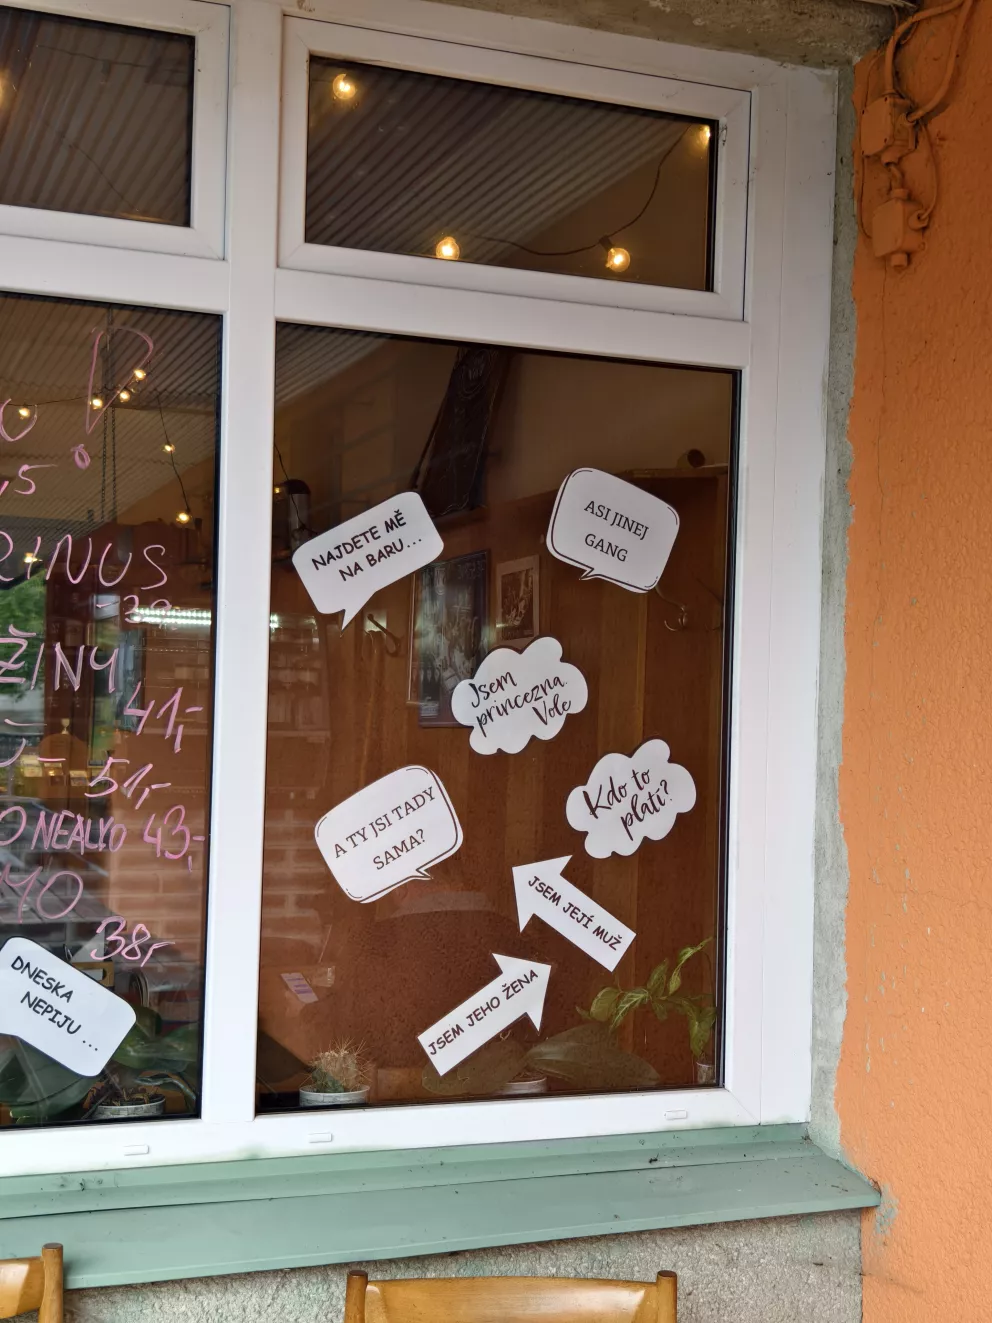 ,5°
RINUS
ŽINY
41,-
51,-
NEALKO 43,-
38,-
DNESKA
NEPIJU ...
NAJDETE MĚ
NA BARU...
ASI JINEJ
GANG
Jsem
princezna.
Vole
Kdo to
platí?
A TY JSI TADY
SAMA?
JSEM JEJÍ MUŽ
JSEM JEHO ŽENA